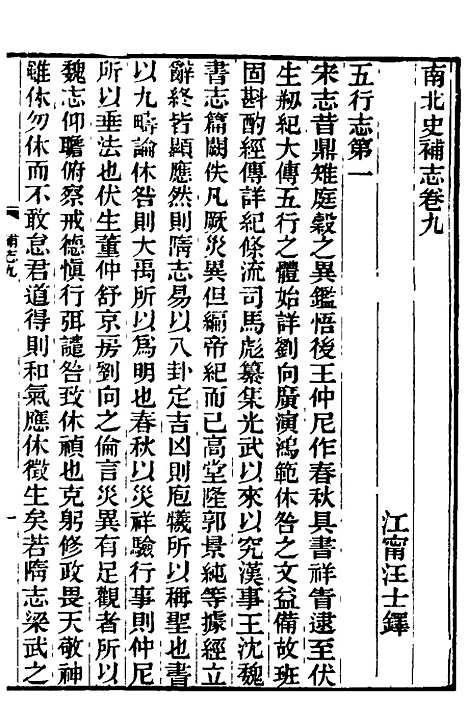 南北史補志卷九
江甯汪士鐸
五行志第一
宋志昔鼎雉庭穀之異鑑悟後王仲尼作春秋具書祥眚逮至伏
生刱紀大傳五行之體始詳劉向廣演鴻範休咎之文益備故班
固斟酌經傳詳紀條流司馬彪纂集光武以來以究漢事王沈魏
書志篇闕佚凡厥災異但編帝紀而已高堂隆郭景純等據經立
辭終皆顯應然則隋志易以八卦定吉凶則庖犧所以稱聖也書
以九疇論休咎則大禹所以爲明也春秋以災祥驗行事則仲尼
所以垂法也伏生董仲舒京房劉向之倫言災異有足觀者所以
魏志仰瞻俯察戒德愼行弭譴咎致休禎也克躬修政畏天敬神
雖休勿休而不敢怠君道得則和氣應休徵生矣若隋志梁武之
補志九
一